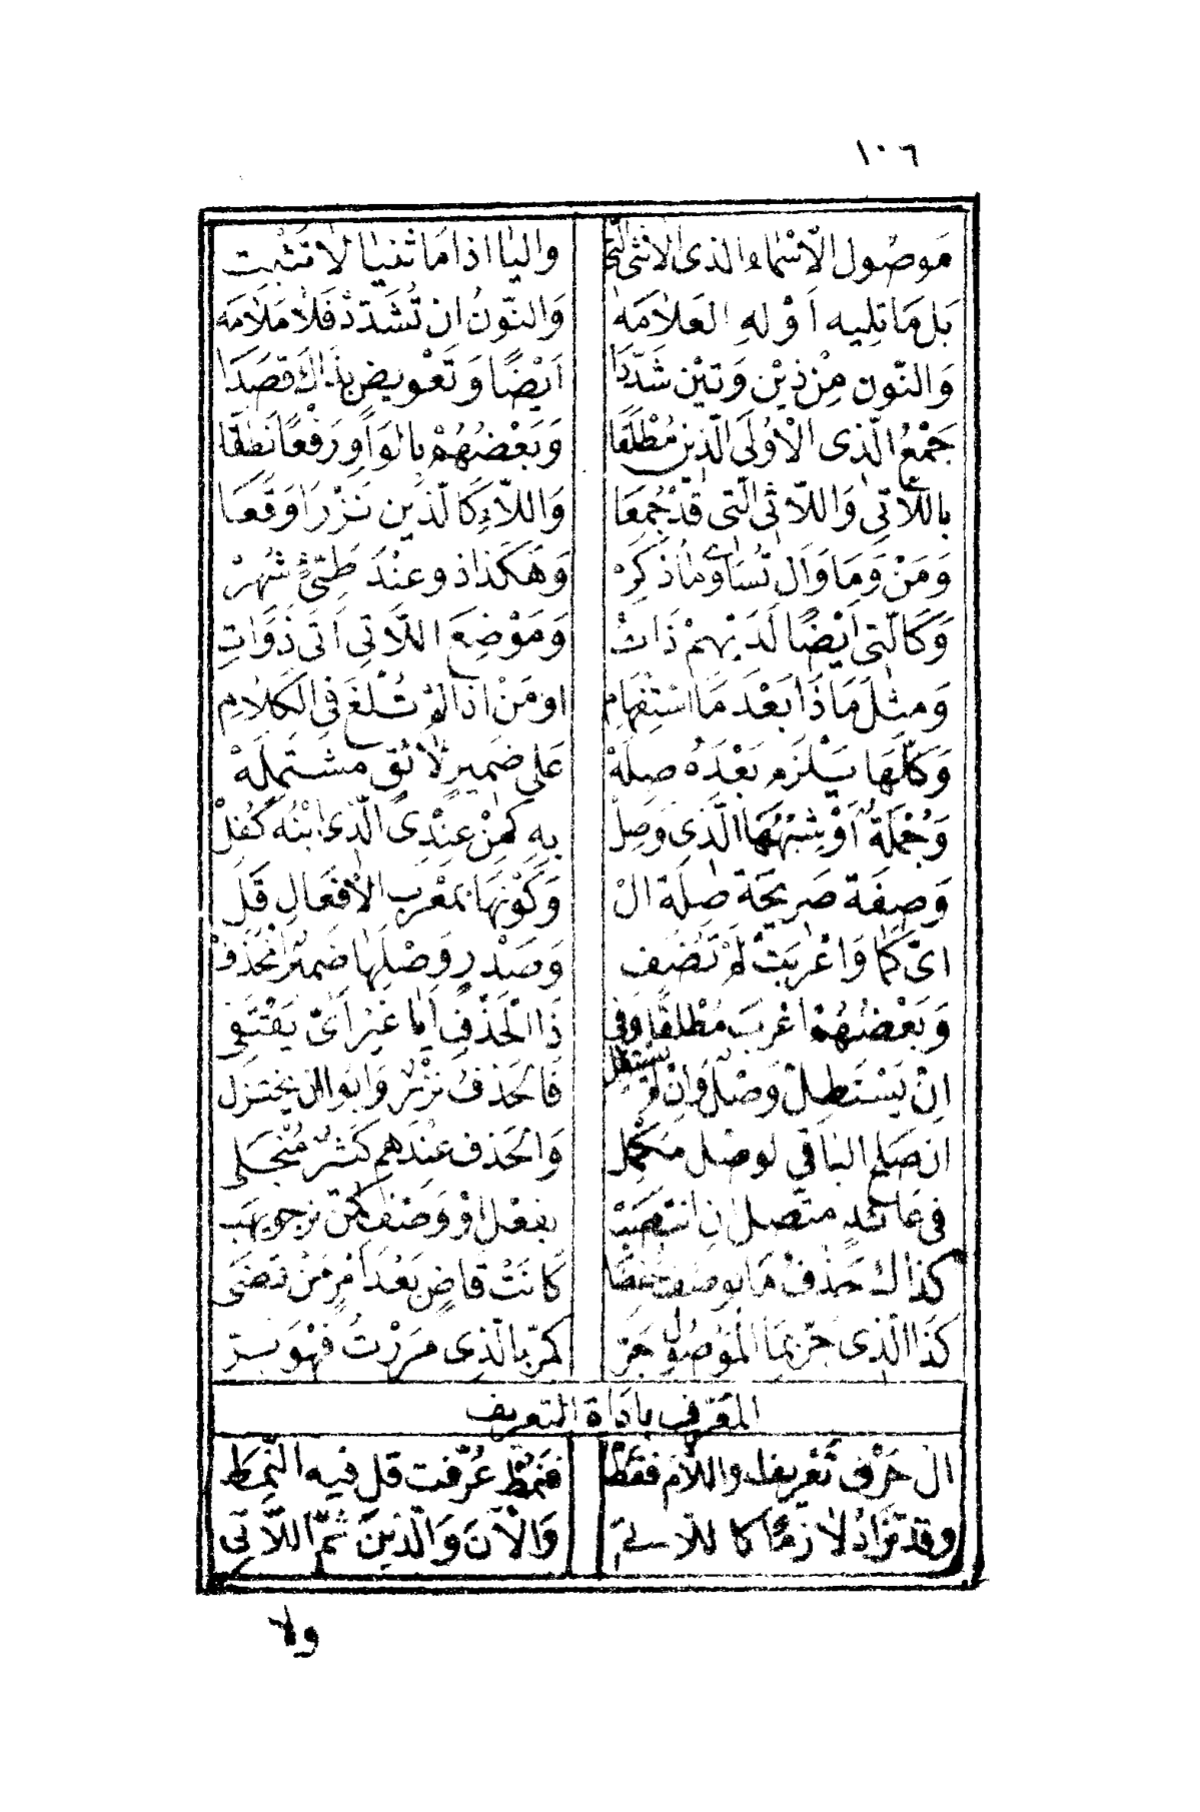 ١٠٦
مَوصُول الاَسْماءِ الذى الانثى الَّتى واليا اذا مَا ثنيا لا تثبت
بَل مَا تليه اَوْلهِ العَلامَهْ وَالنّونُ ان تُشدَدْ فَلا مَلامَهْ
وَالنّون مِنْ ذَيْن وَتَيْن شَدّدَا اَيْضًا وَتَعْويض بذاك قصَدَا
جَمْعُ الّذى الاْولَى الّذين مُطْلَقَا وَبَعْضُهُمْ بالوَاو رَفْعًا نَطقَا
باللاَّتى وَاللاّئى الّتى قَدْ جُمِعَا وَاللاّءِ كَالّذين نَزْرًا وَقَعَا
وَمَنْ وَمَا وَال تُسَاوى مَا ذكِرْ وَهكَذا ذو عنْدَ طَيّئٍ شُهرْ
وَكَالّتى اَيْضًا لَدَيْهِمْ ذَاتُ وَمَوْضِعَ اللاَّتى اَتَى ذَوَاتِ
وَمثلَ مَاذَا بَعْدَ مَا اسْتِفْهَام اومَنْ اذا لَمْ تُلْغَ فى الكَلامِ
وَكلّهَا يَلْزَم بَعْدَهُ صلَهْ عَلى ضَميرٍ لائق مشتملَهْ
وَجُمْلَةٌ اَوْ شِبْهُهَا الَّذى وَصِلْ بِهِ كَمَنْ عِنْدى الّذى ابْنُهُ كُفلْ
وَصِفَة صَريحَة صلَة اَلْ وَكَوْنهَا بمَعْرَب الافعَال قَلّ
اىّ كمَا وَاعْربَتْ لَمْ تضَف وَصَدْر وَصْلِهَا ضَميرٌ انحَذَفْ
وَبَعْضُهُمْ اعْربَ مُطْلقًا وَفى ذَا الحَذْف اَيًا غَيْرُ اَىّ يَقْتَفى
اِنْ يُسْتَطلْ وَصْلٌ وَاِنْ لَمْ يستطل فَالحَذفُ نَزْرٌ وَاَبَوا ان يختزَل
ان صَلح البَاقى لوصْل مُكْمل وَالحَذف عنْدَهم كَثيرٌ مُنْجَلى
فى عَائدٍ متصل ان انتَصَبْ بفعْل اَوْ وَصْف كَمَنْ نرجو يهَب
كذاكَ حَذفُ مَا بوَصْف خفضَا كَانْتَ قاضٍ بَعْدَ اَمْر منْ قضَى
كَذَا الّذى جُرّ بمَا المَوْصُول جَرّ كَمُرّ بالّذى مَرَرْتُ فَهْوَ بَرّ
المعَرّف باداة التعريف
ال حَرْف تَعْريف او اللام فقَطْ فنَمَطٌ عُرّفت قل فيه النَّمَط
وقد تزادُ لازمًا كاللات وَالآنَ وَالَّذينَ ثمّ اللاَّتى
ولا